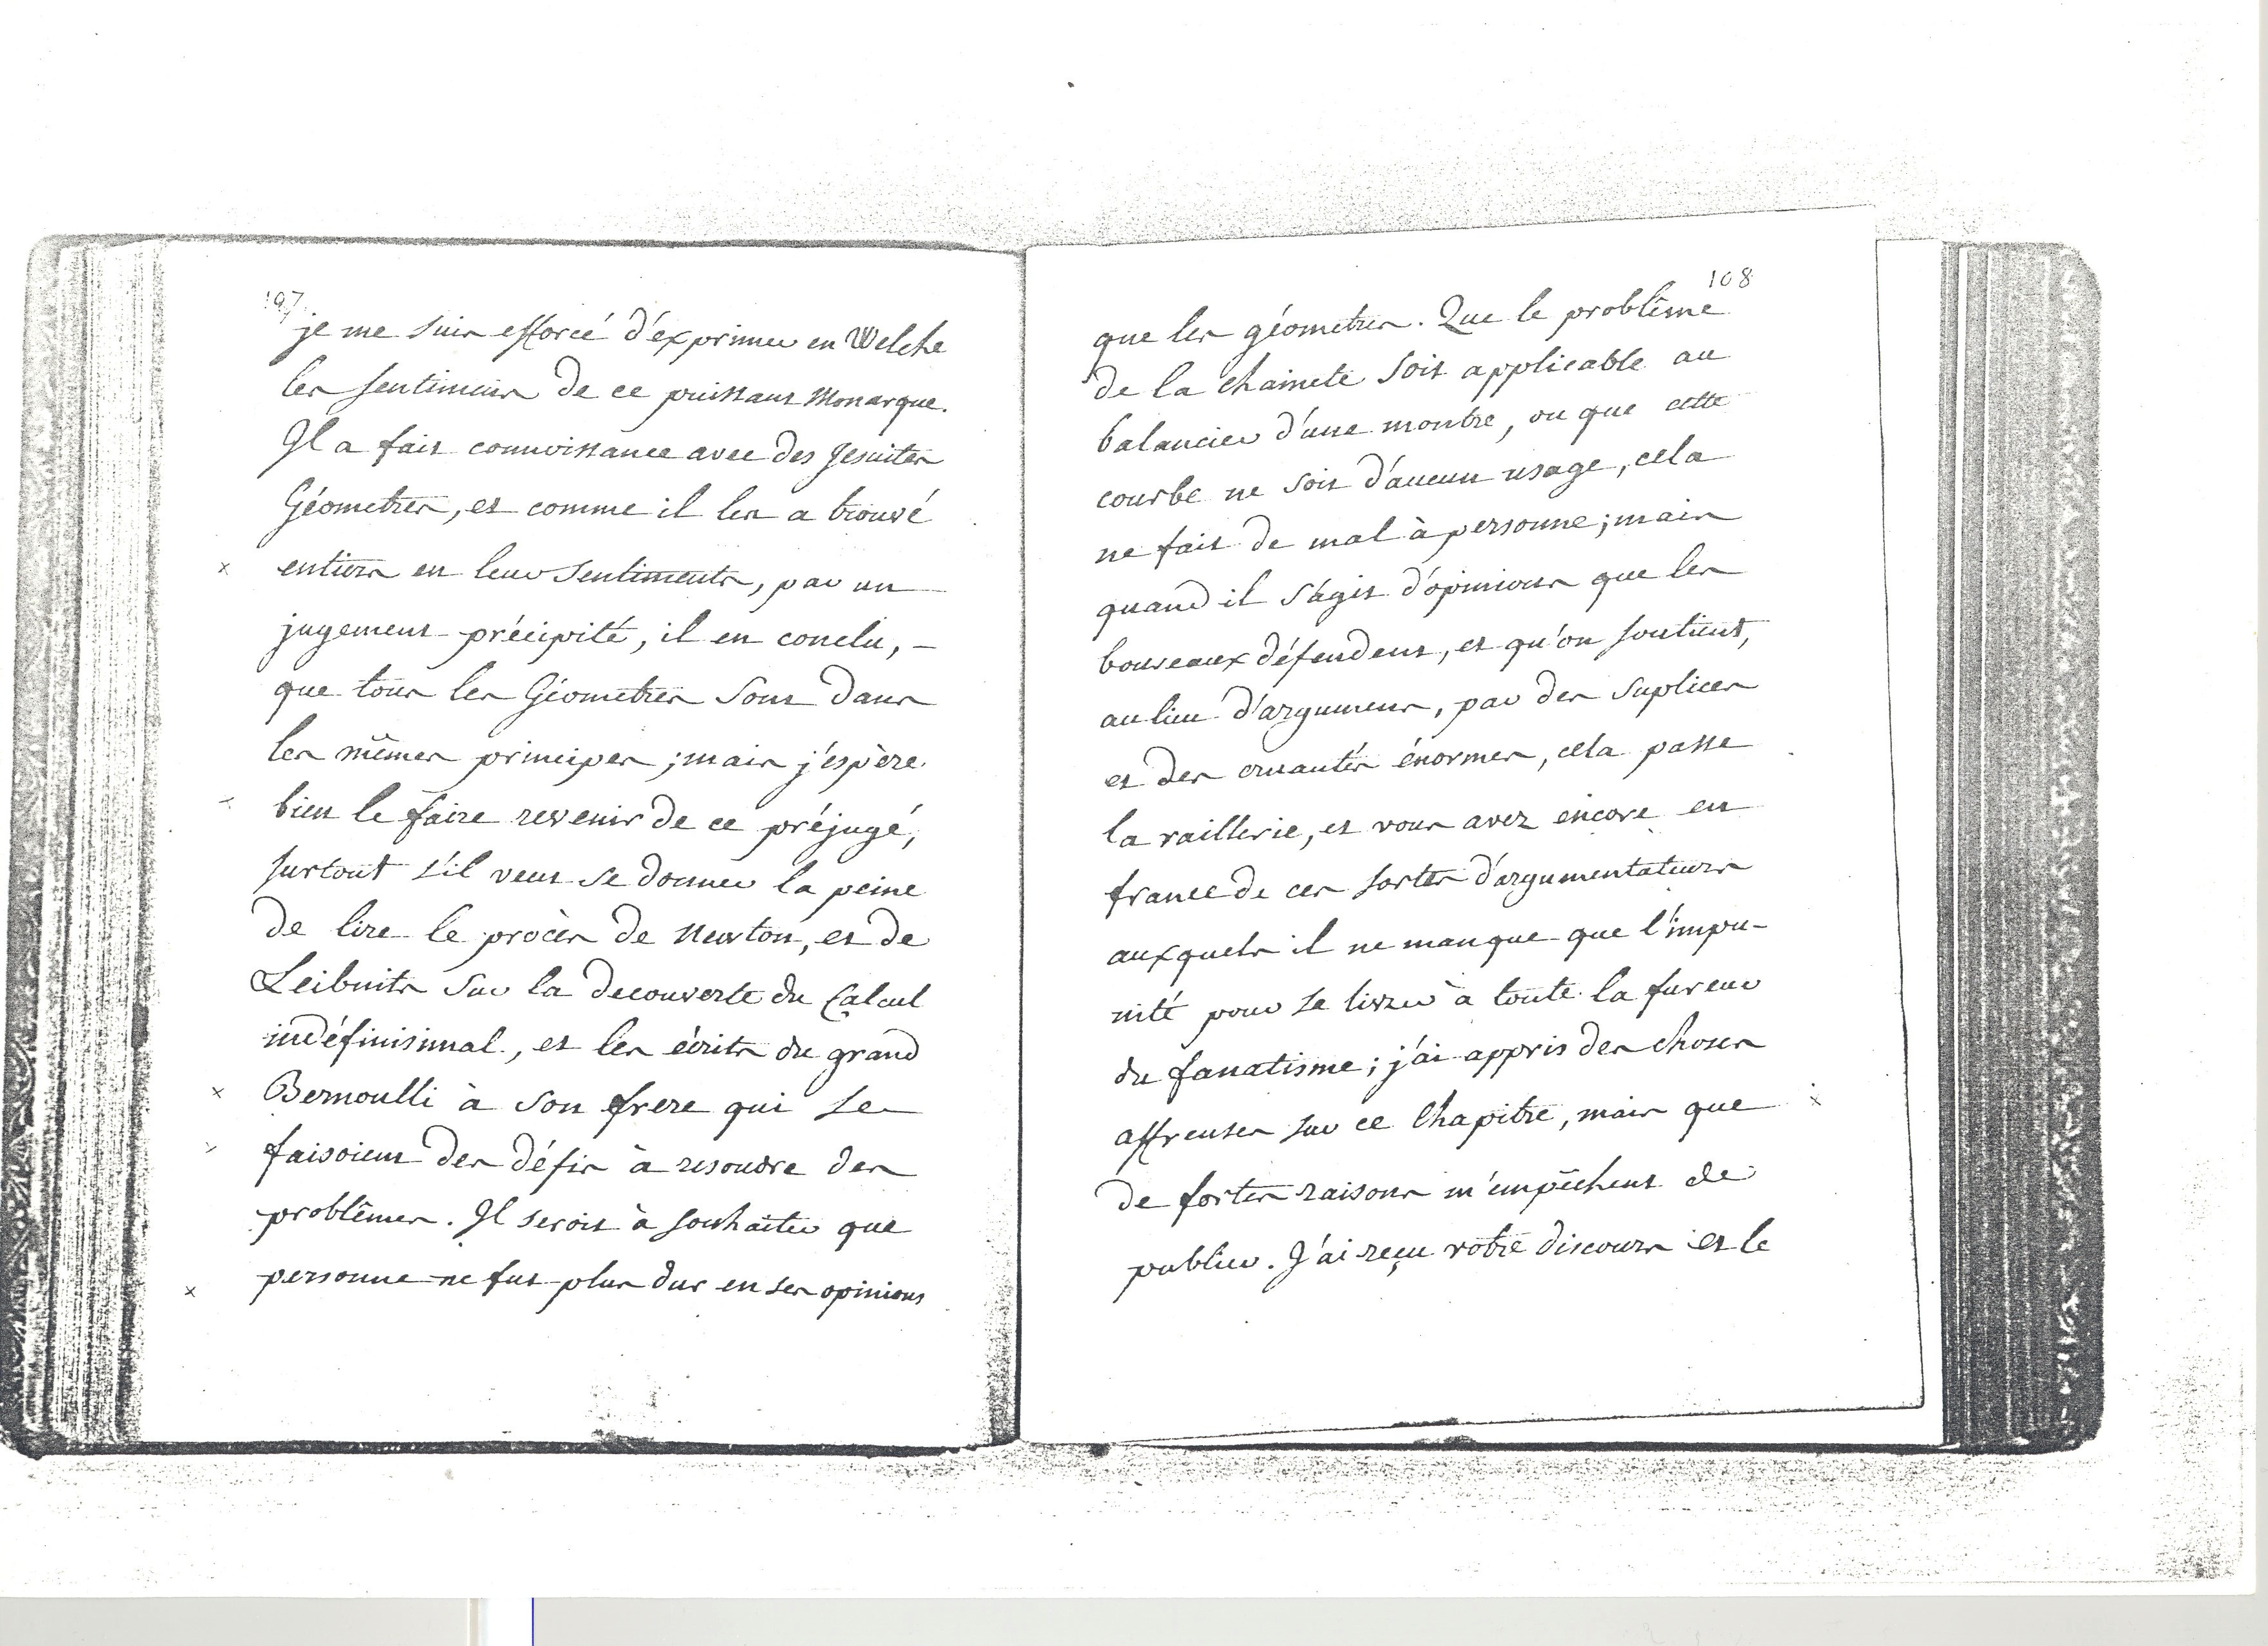 107
je me suis efforcé d'exprimer en Welche
les sentimens de ce puissant Monarque.
Il a fait connoissance avec des Jesuites
Géometres, et comme il les a trouvé
entiers en leur sentiments, par un
jugement précipité, il en conclu, -
que tous les Géometres sont dans
les mêmes principes ; mais j'espère
bien le faire revenir de ce préjugé,
surtout s'il veut se donner la peine
de lire le procès de Newton, et de
Leibnits sur la decouverte du Calcul
indéfinisimal, et les écrits du grand
Bernoulli à son frere qui se
faisoient des défis à resoudre des
problêmes. Il seroit à souhaiter que
personne ne fut plus dur en ses opinions
108
que les géometres. Que le problême
de la chainete soit applicable au
balancier d'une montre, ou que cette
courbe ne soit d'aucun usage, cela
ne fait de mal à personne ; mais
quand il s'agit d'opinions que les
boureaux défendent, et qu'on soutient,
au lieu d'argumens, par des suplices
et des cruautés énormes, cela passe
la raillerie, et vous avez encore en
france de ces sortes d'argumentateurs
auxquels il ne manque que l'impu-
nité pour se livrer à toute la fureur
du fanatisme ; j'ai appris des choses
affreuses sur ce Chapitre, mais que
de fortes raisons m'empêchent de
publier. J'ai reçu votre discours et le